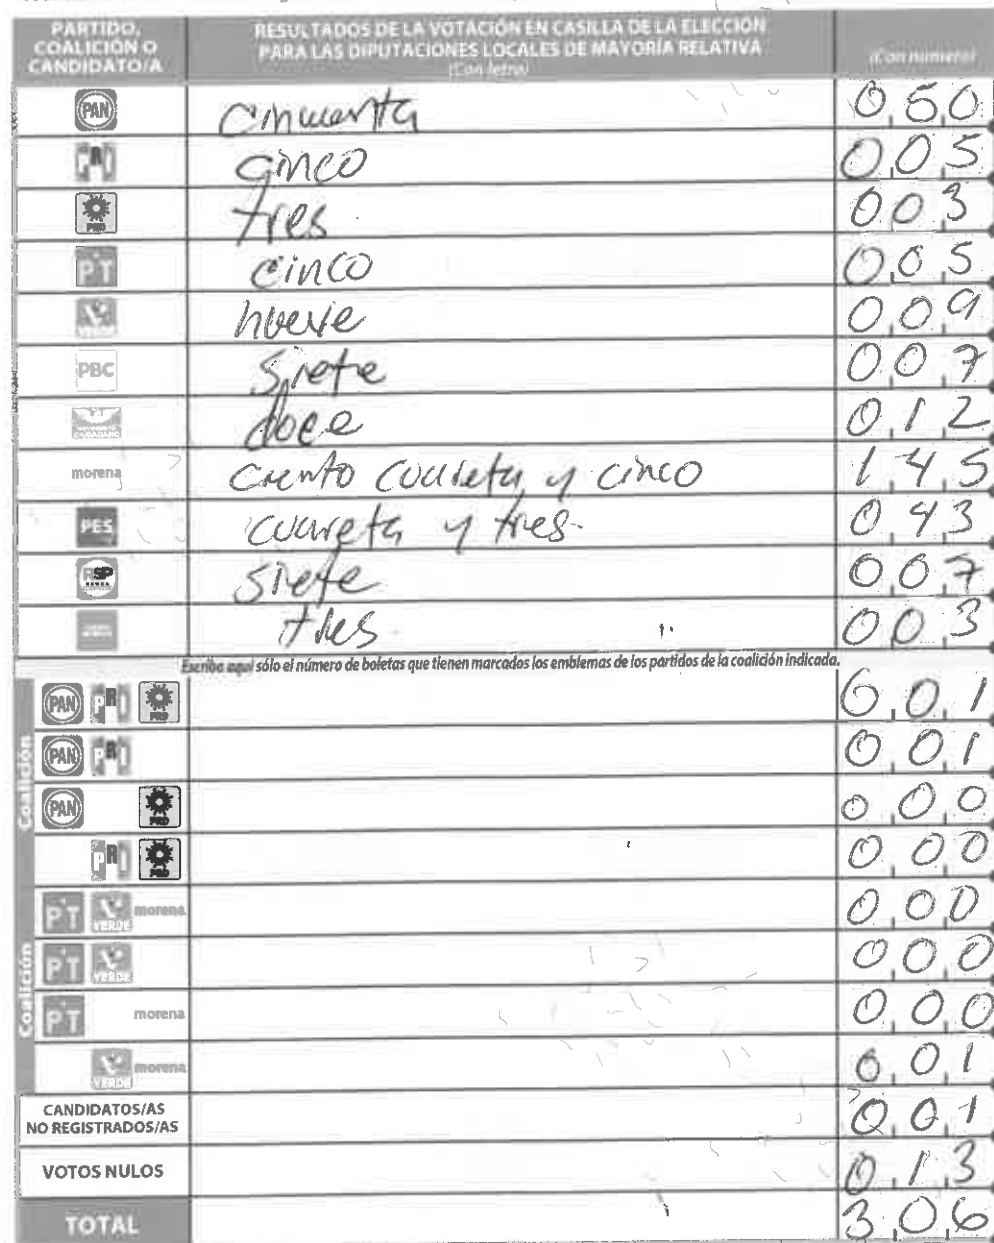 PARTIDO, COALICIÓN O CANDIDATO/A RESULTADOS DE LA VOTACIÓN EN CASILLA DE LA ELECCIÓN PARA LAS DIPUTACIONES LOCALES DE MAYORÍA RELATIVA (Con letra) (Con número)
PAN Cincuenta 050
PRI cinco 005
PRD tres 003
PT cinco 005
VERDE nueve 009
PBC siete 007
MOVIMIENTO CIUDADANO doce 012
morena Ciento cuareta y cinco 145
PES cuareta y tres 043
RSP siete 007
tres 003
Escriba aquí sólo el número de boletas que tienen marcados los emblemas de los partidos de la coalición indicada.
Coalición
PAN PRI PRD 001
PAN PRI 001
PAN PRD 000
PRI PRD 000
Coalición
PT VERDE morena 000
PT VERDE 000
PT morena 000
VERDE morena 001
CANDIDATOS/AS NO REGISTRADOS/AS 001
VOTOS NULOS 013
TOTAL 306